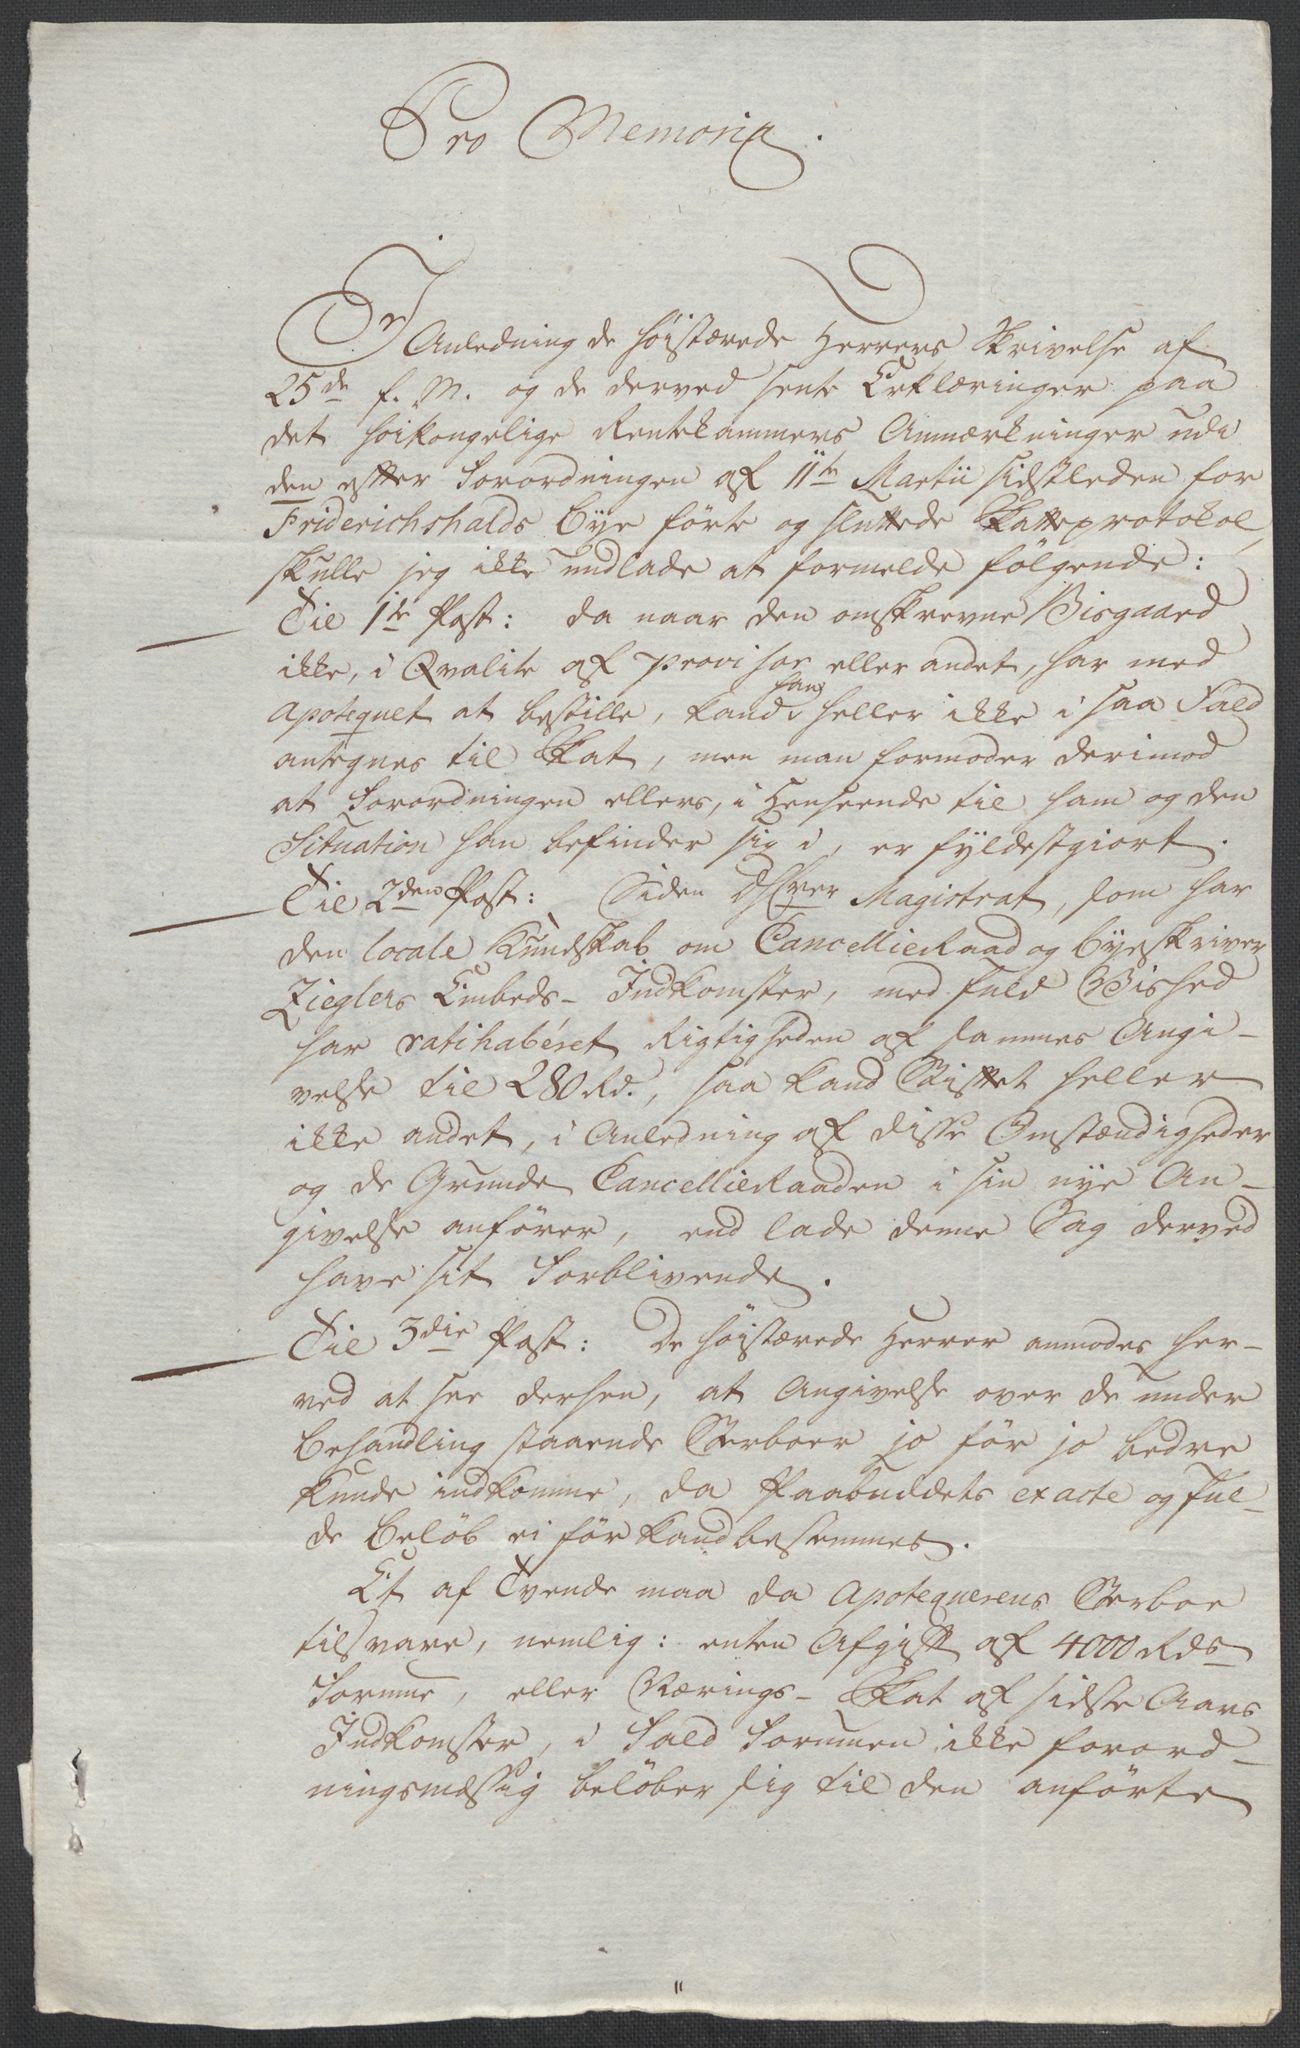 Pro Memoria.
I Anledning de høistærede Herrers Skrivelse af
25de f. M. og de derved sente Erklæringer paa
det høikongelige Rentekammers Anmærkninger udi
den efter Forordningen af 11te Martii sidstleden for
Friderichshalds Bye førte og sluttede Skatteprotokol
skulle jeg ikke undlade at formelde følgende:
Til 1te Post: da naar den omskrevne Bisgaard
ikke, i Qvalite af provisor eller andet, har med
Apotequet at bestille, kand han heller ikke i saa Fald
antegnes til Skat, men man formoder derimod
at Forordningen ellers, i Henseende til ham og den
Situation han befinder sig i, er fyldestgiort.
Til 2den Post: Siden Magistrat, som har
den locale Kundskab om CancellieRaad og Byeskriver
Zieglers Embeds- Indkomster, med fuld Vished
har ratihaberet Rigtigheden af sammes Angi-
velse til 280 Rd., saa kand Stiftet heller
ikke andet, i Anledning af disse Omstændigheder
og de Grunde CancellieRaaden i sin nye An-
givelse anfører, end lade denne Sag derved
have sit Forblivende.
Til 3die Post: De høistærede Herrer anmodes her-
ved at see derhen, at Angivelse over de under
Behandling staaende Sterboer jo før jo bedre
kunde indkomme, da Paabuddets exacte og ful-
de Beløb ei før kand bestemmes.
Et af Tvende maa da Apotequerens Sterboe
tilsvare, nemlig: enten Afgift af 4000 Rds
Formue, eller Nærings- Skat af sidste Aars
Indkomster, i Fald Formuen ikke forord-
ningsmæssig beløber sig til den anførte